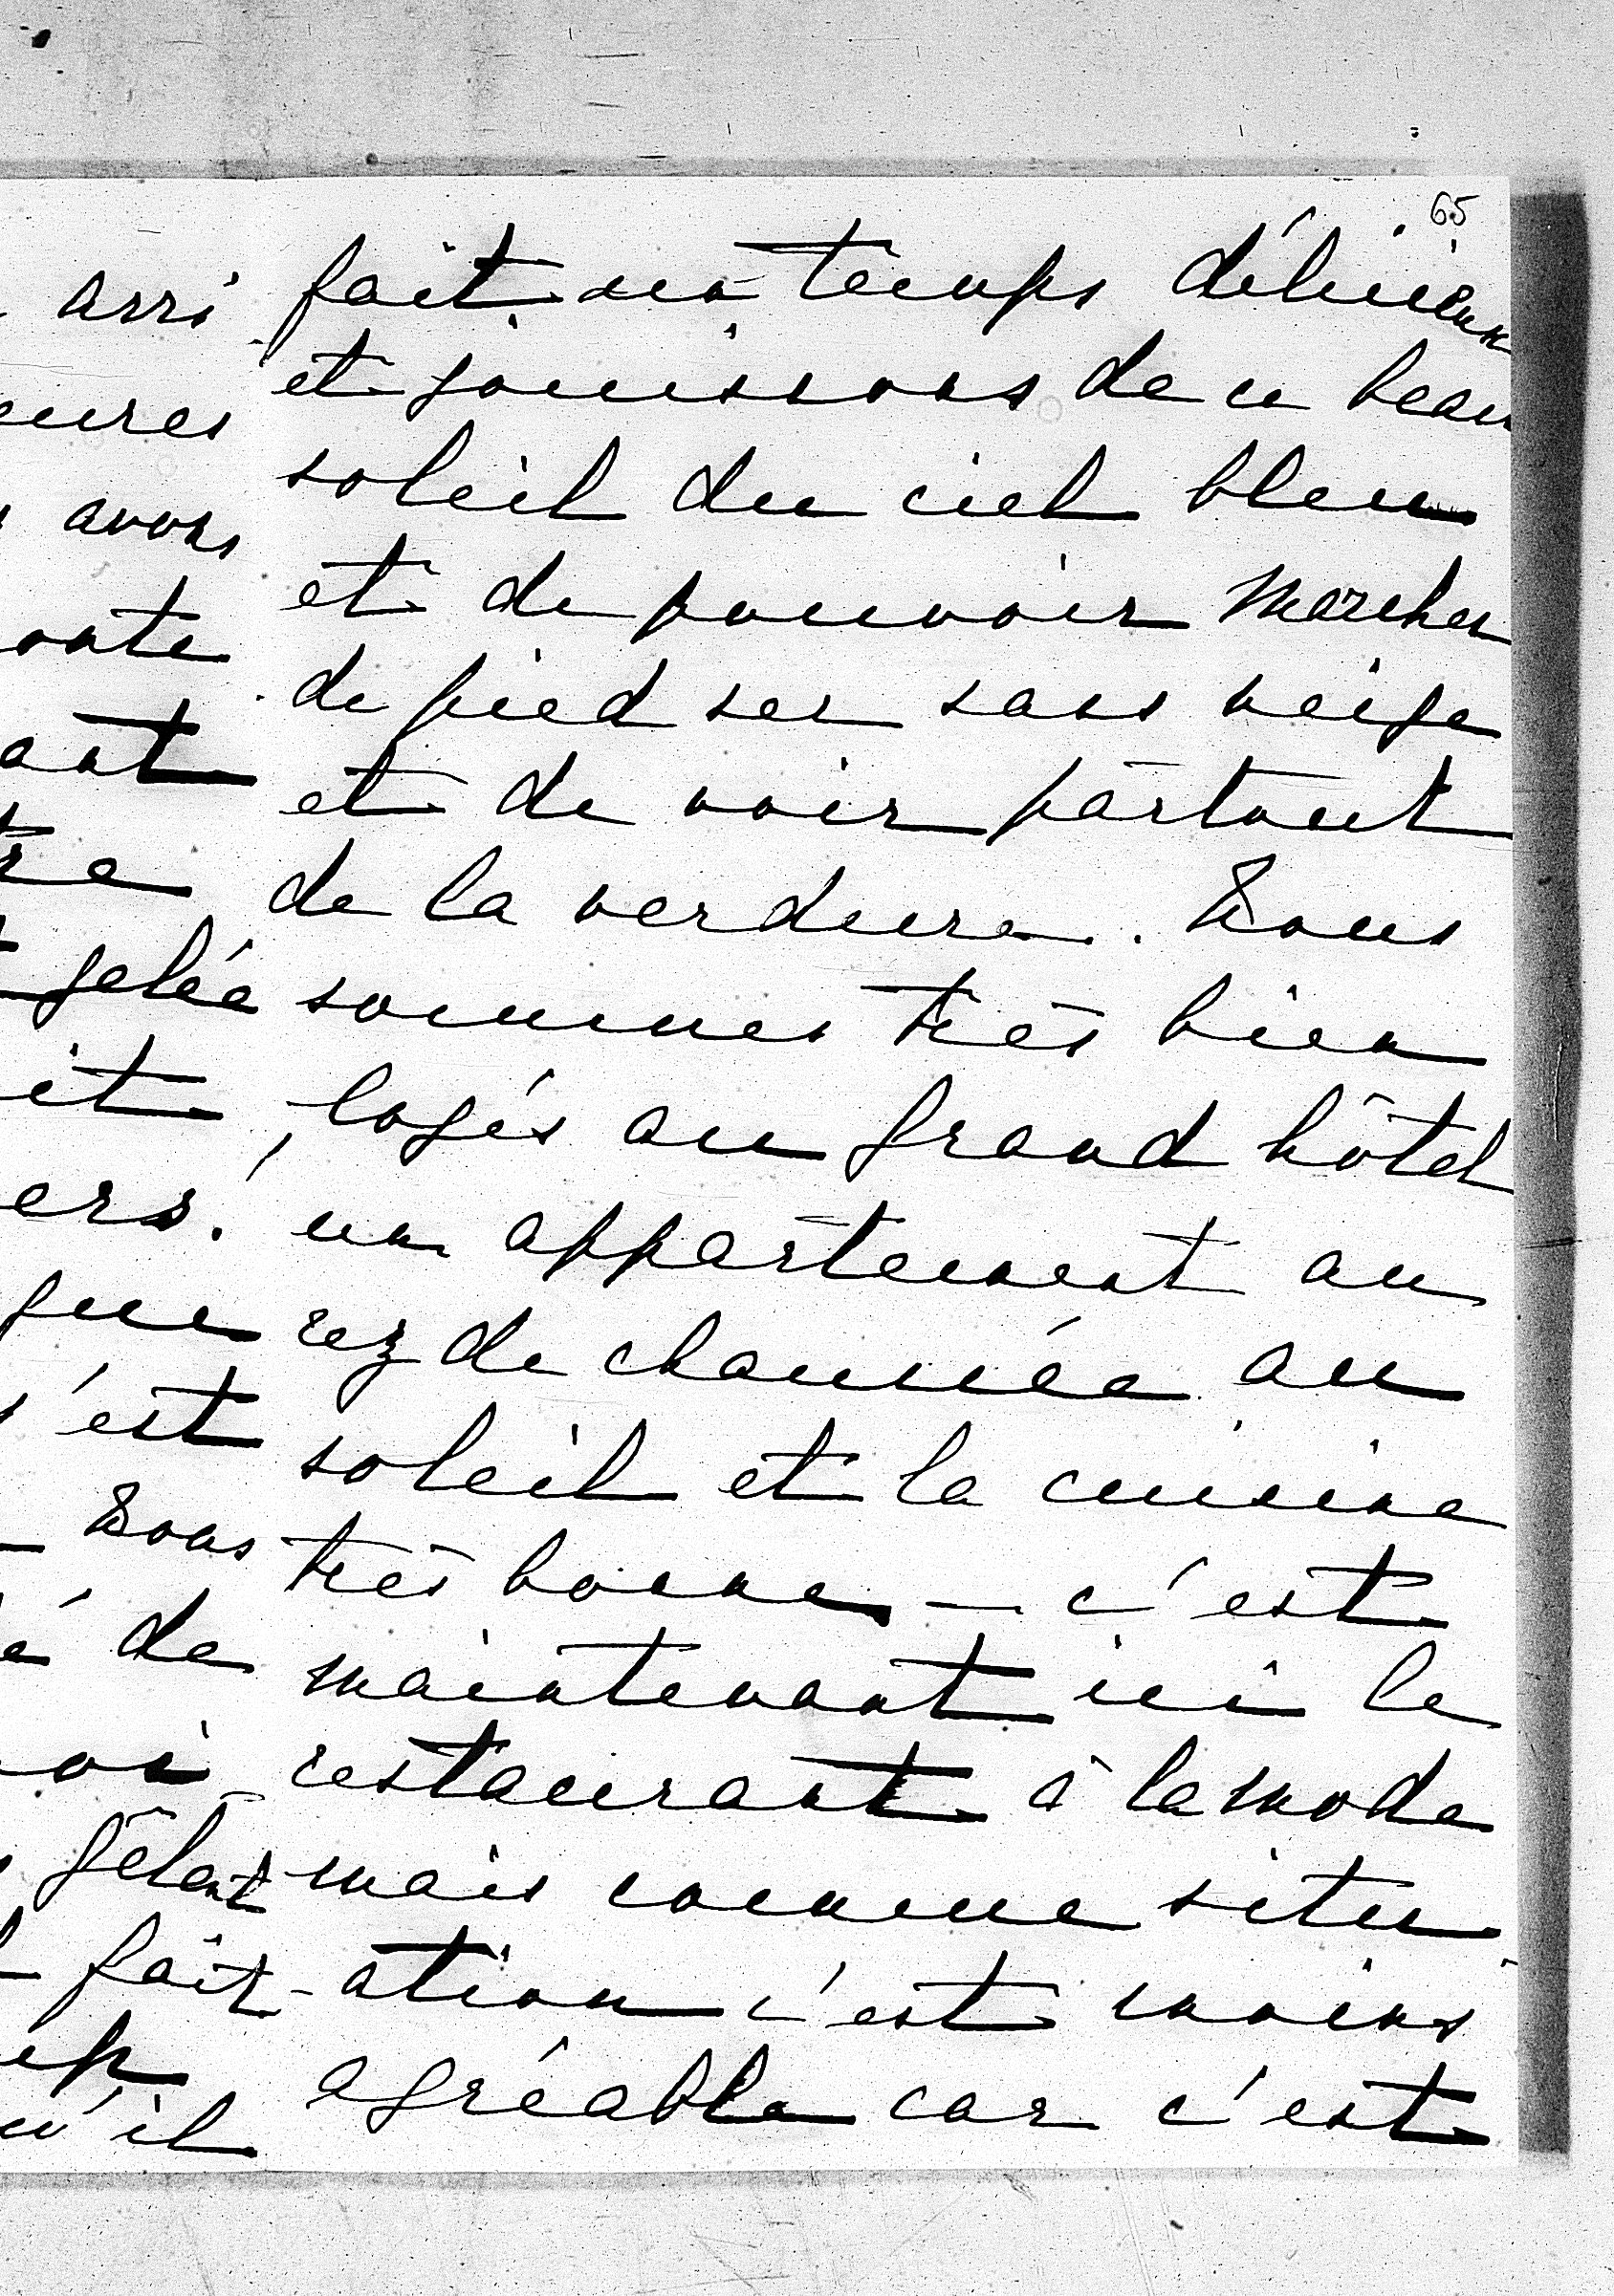 65
arri
eures
avons
oute
ant
tre
gelée
it
ers.
que
s'est
Nous
é de
oi
gèlent
fait
up
qu'il
fait un temps délicieux
et jouissons de ce beau
soleil du ciel bleu
et de pouvoir marcher
de pied sec sans neige
et de voir partout
de la verdure. Nous
sommes très bien
logés au grand hôtel
un appartement au
rez de chaussée au
soleil et la cuisine
très bonne — c'est
maintenant ici le
restaurant à la mode
mais comme situ-
-ation c'est moins
agréable car c'est